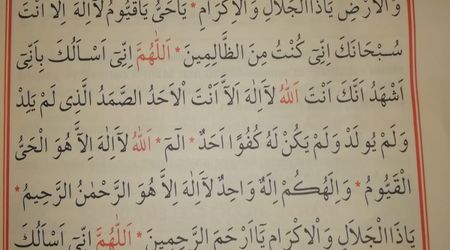 وَالْاَرْضِ يَاذَا الْجَلَالِ وَالْاِكْرَامِ * يَاحَيُّ يَاقَيُّومُ لَآ اِلٰهَ اِلَّآ اَنْتَ
سُبْحَانَكَ اِنّٖى كُنْتُ مِنَ الظَّالِمِينَ * اَللّٰهُمَّ اِنّٖى اَسْاَلُكَ بِاَنّٖى
اَشْهَدُ اَنَّكَ اَنْتَ اَللّٰهُ لَآ اِلٰهَ اِلَّآ اَنْتَ الْاَحَدُ الصَّمَدُ الَّذٖى لَمْ يَلِدْ
وَلَمْ يُولَدْ وَلَمْ يَكُنْ لَهُ كُفُوًا اَحَدٌ * الٓمٓ * اَللّٰهُ لَآ اِلٰهَ اِلَّا هُوَ الْحَىُّ
الْقَيُّومُ * وَاِلٰهُكُمْ اِلٰهٌ وَاحِدٌ لَآ اِلٰهَ اِلَّا هُوَ الرَّحْمٰنُ الرَّحِيمُ *
يَاذَا الْجَلَالِ وَالْاِكْرَامِ يَآ اَرْحَمَ الرَّحِمِينَ * اَللّٰهُمَّ اِنّٖى اَسْاَلُكَ